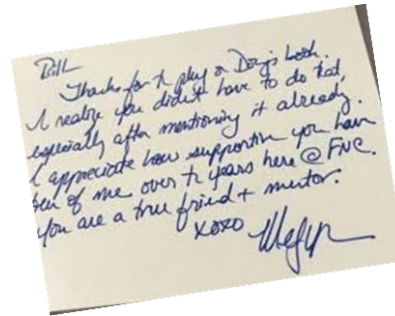 Bill
Thanks for th plug on Doug's book.
I realize you didn't have to do that,
especially after mentioning it already.
I appreciate how supportive you have
been of me over th years here @ FNC.
You are a true friend + mentor.
xoxo Megyn